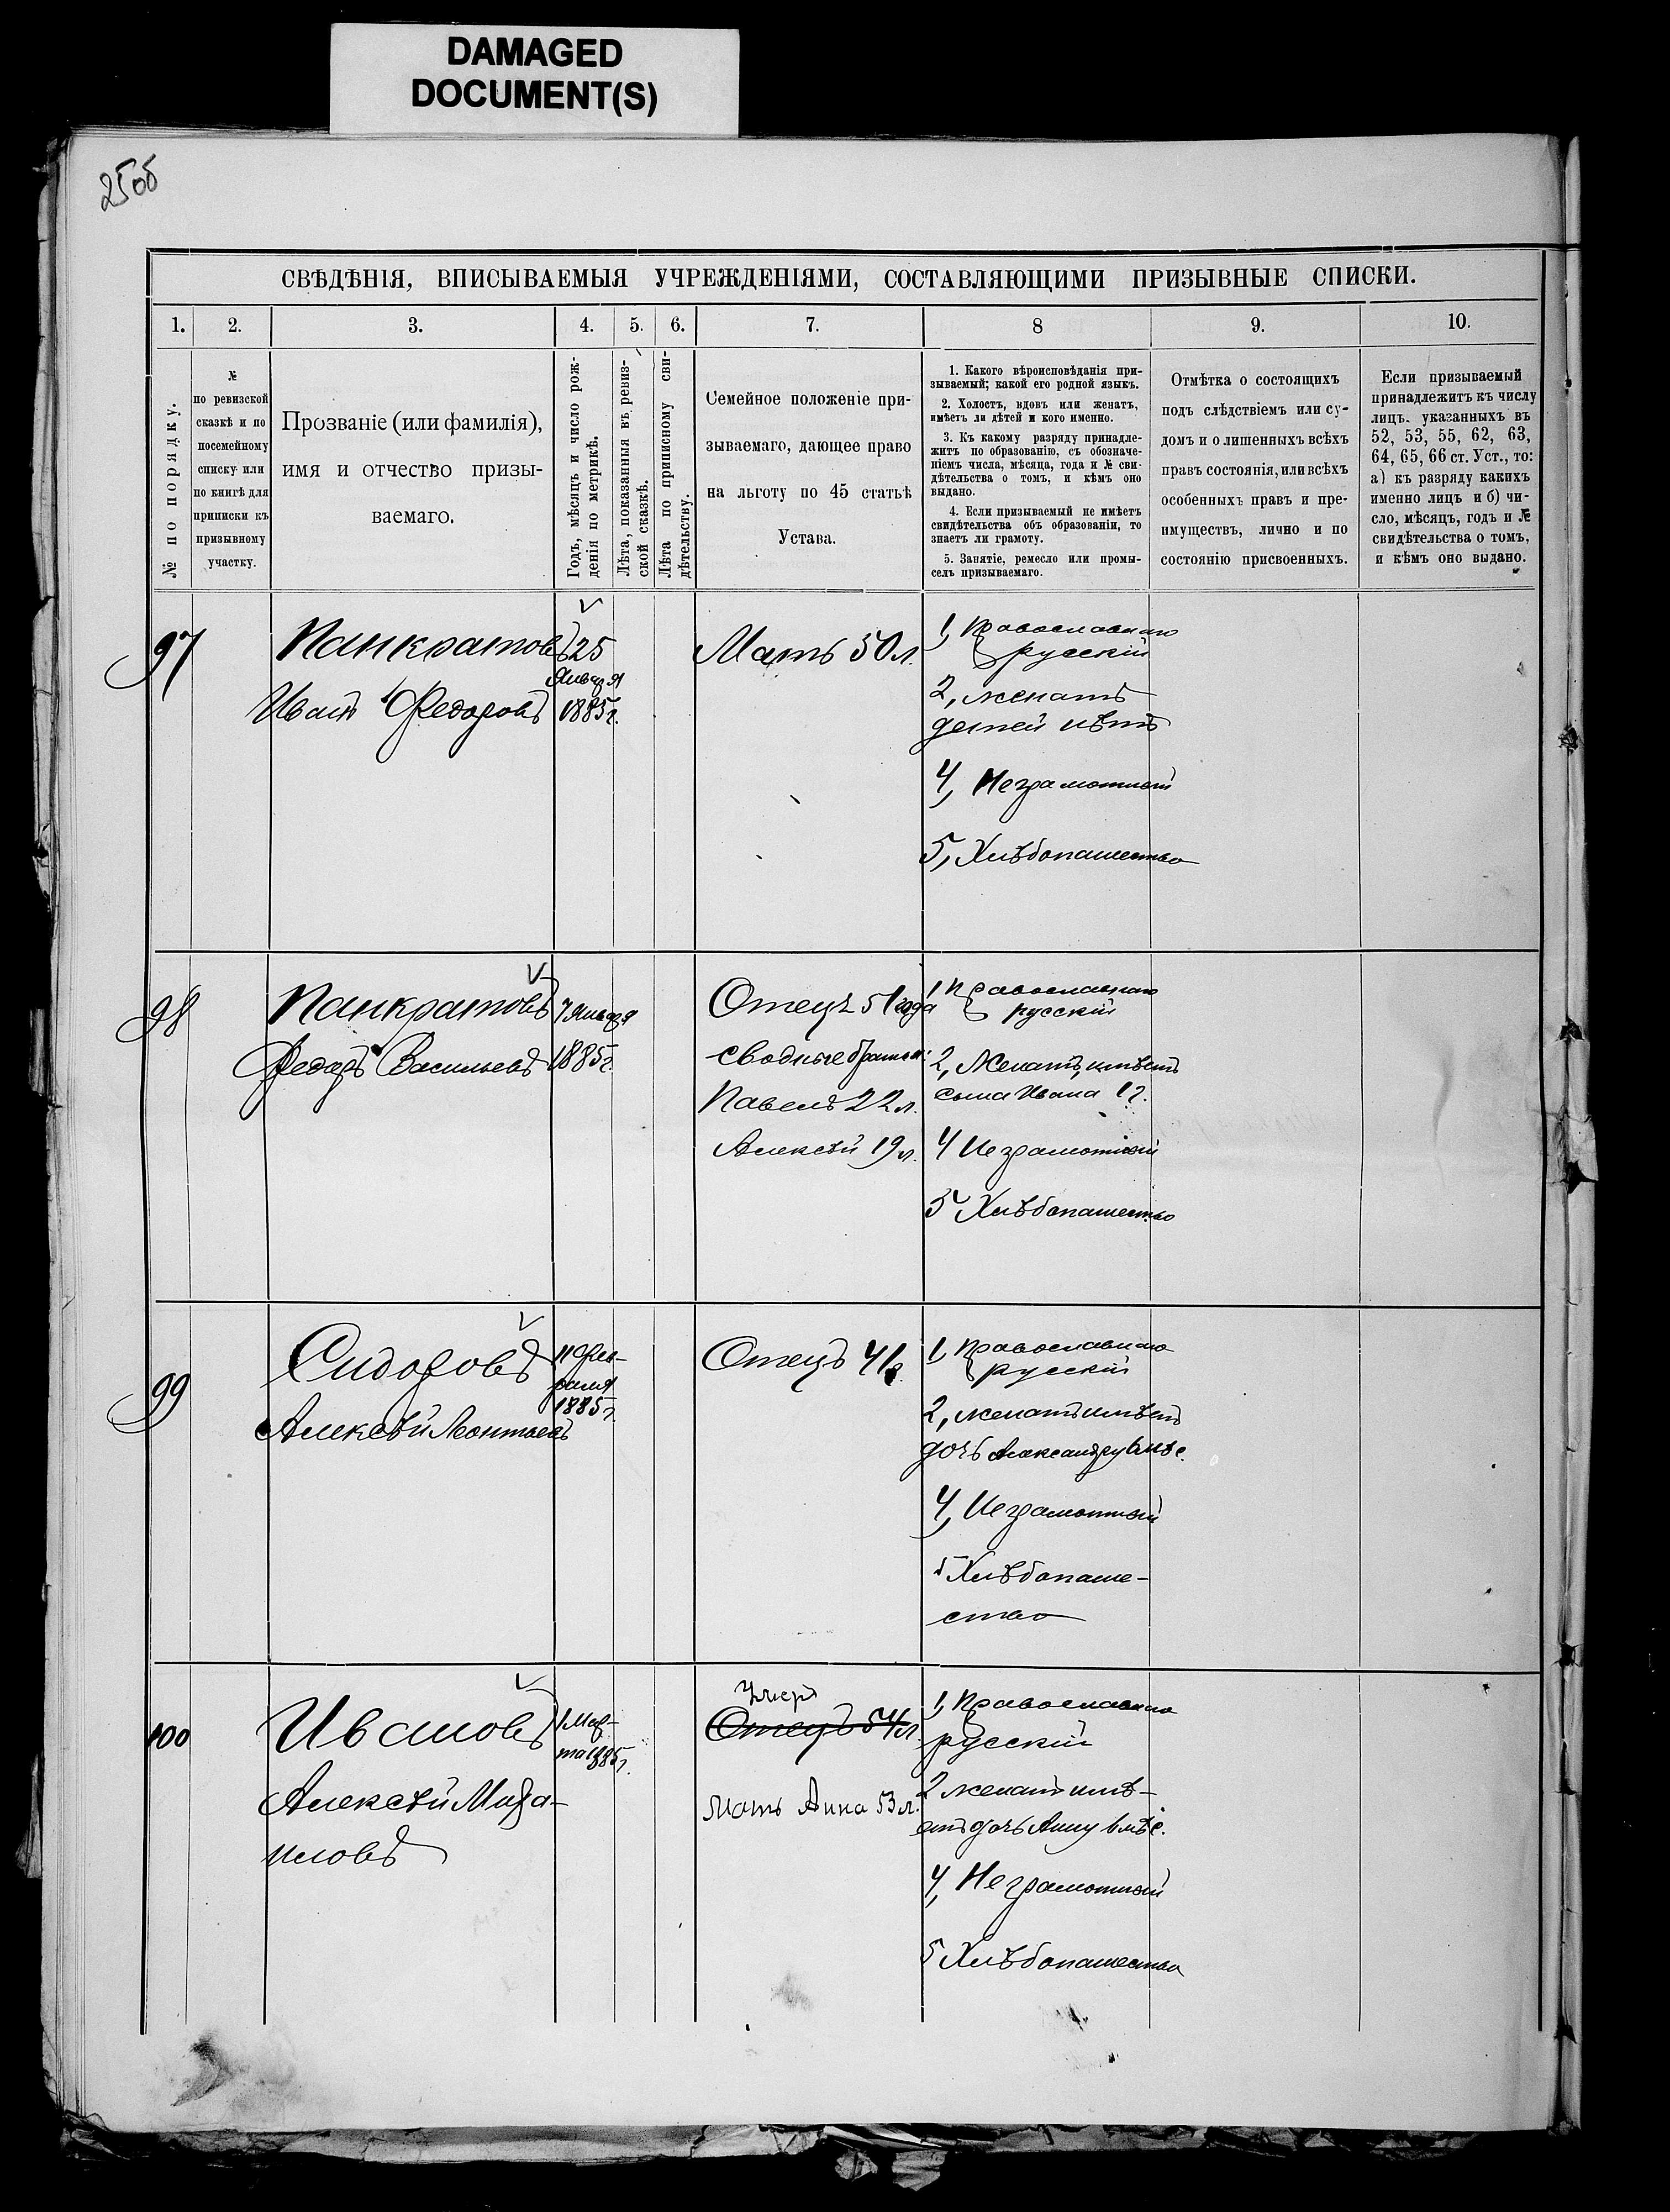 DAMAGED
DOCUMENT(S)
250б
СВѢДѢНІЯ, ВПИСЫВАЕМЫЯ УЧРЕЖДЕНІЯМИ, СОСТАВЛЯЮЩИМИ ПРИЗЫВНЫЕ СПИСКИ.
1. 2. 3. 4. 5. 6. 7. 8 9. 10.
№ по порядку.
№
по ревизской
сказкѣ и по
посемейному
списку или
по книгѣ для
приписки къ
призывному
участку.
Прозваніе (или фамилія),
имя и отчество призы-
ваемаго.
Годъ, мѣсяцъ и число рож-
денія по метрикѣ.
Лѣта, показанныя въ ревиз-
ской сказкѣ.
Лѣта по приписному сви-
дѣтельству.
Семейное положеніе при-
зываемаго, дающее право
на льготу по 45 статьѣ
Устава.
1. Какого вѣроисповѣданія при-
зываемый; какой его родной языкъ.
2. Холостъ, вдовъ или женатъ,
имѣетъ ли дѣтей и кого именно.
3. Къ какому разряду принадле-
житъ по образованію, съ обозначе-
ніемъ числа, мѣсяца, года и № сви-
дѣтельства о томъ, и кѣмъ оно
выдано.
4. Если призываемый не имѣетъ
свидѣтельства объ образованіи, то
знаетъ ли грамоту.
5. Занятіе, ремесло или промы-
селъ призываемаго.
Отмѣтка о состоящихъ
подъ слѣдствіемъ или су-
домъ и о лишенныхъ всѣхъ
правъ состоянія, или всѣхъ
особенныхъ правъ и пре-
имуществъ, лично и по
состоянію присвоенныхъ.
Если призываемый
принадлежитъ къ числу
лицъ. указанныхъ въ
52, 53, 55, 62, 63,
64, 65, 66 ст. Уст., то:
а) къ разряду какихъ
именно лицъ и б) чи-
сло, мѣсяцъ, годъ и №
свидѣтельства о томъ,
и кѣмъ оно выдано.
97
Панкратовъ
Иванъ Федоровъ
25
Января
1885г.
Мать 50 л.
1, Православнаго
русскій
2, женатъ
детей нѣтъ
4, Неграмотный
5, Хлѣбопашество
98
Панкратовъ
Федоръ Васильевъ
7 Января
1885г.
Отецъ 51 года
сводные братья:
Павелъ 22 л.
Алексѣй 19 л.
1 Православнаго
русскій
2, Женатъ, имѣетъ
сына Ивана 1 г.
4 Неграмотный
5 Хлѣбопашество
99
Сидоровъ
Алексѣй Леонтьевъ
11 Фев-
раля
1885г.
Отецъ 41 г.
1, Православнаго
русскій
2, женатъ имѣетъ
дочь Александру 6 мѣс.
4, Неграмотный
5 Хлѣбопаше-
ство
100
Ивановъ
Алексѣй Миха-
иловъ
1 Мар-
та 1885г.
Умеръ
Отецъ 54 л.
Мать Анна 53 л.
1, Православнаго
русскій
2 женатъ имѣ-
етъ дочь Анну 6 мѣс.
4, Неграмотный
5 Хлѣбопашество